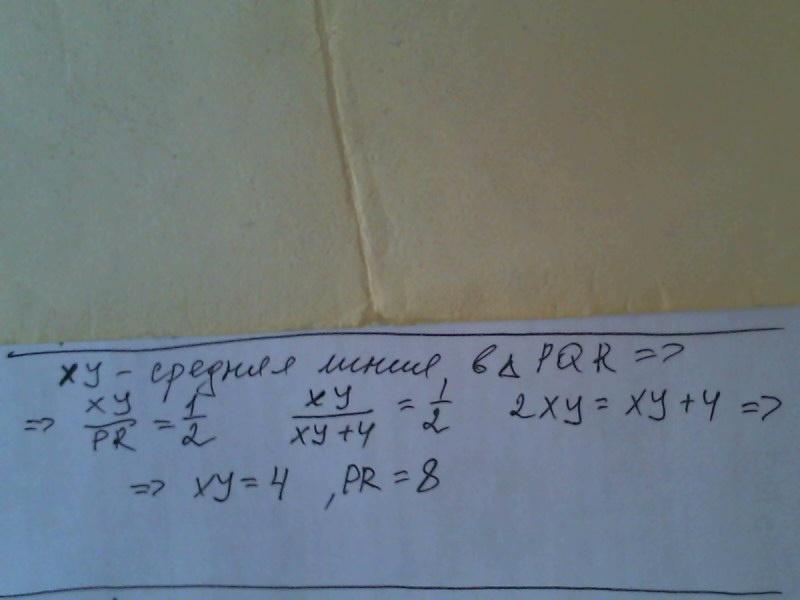 XY - средняя линия в △ PQR =>
=> XY/PR = 1/2 XY/XY+4 = 1/2 2XY = XY+4 =>
=> XY = 4 , PR = 8